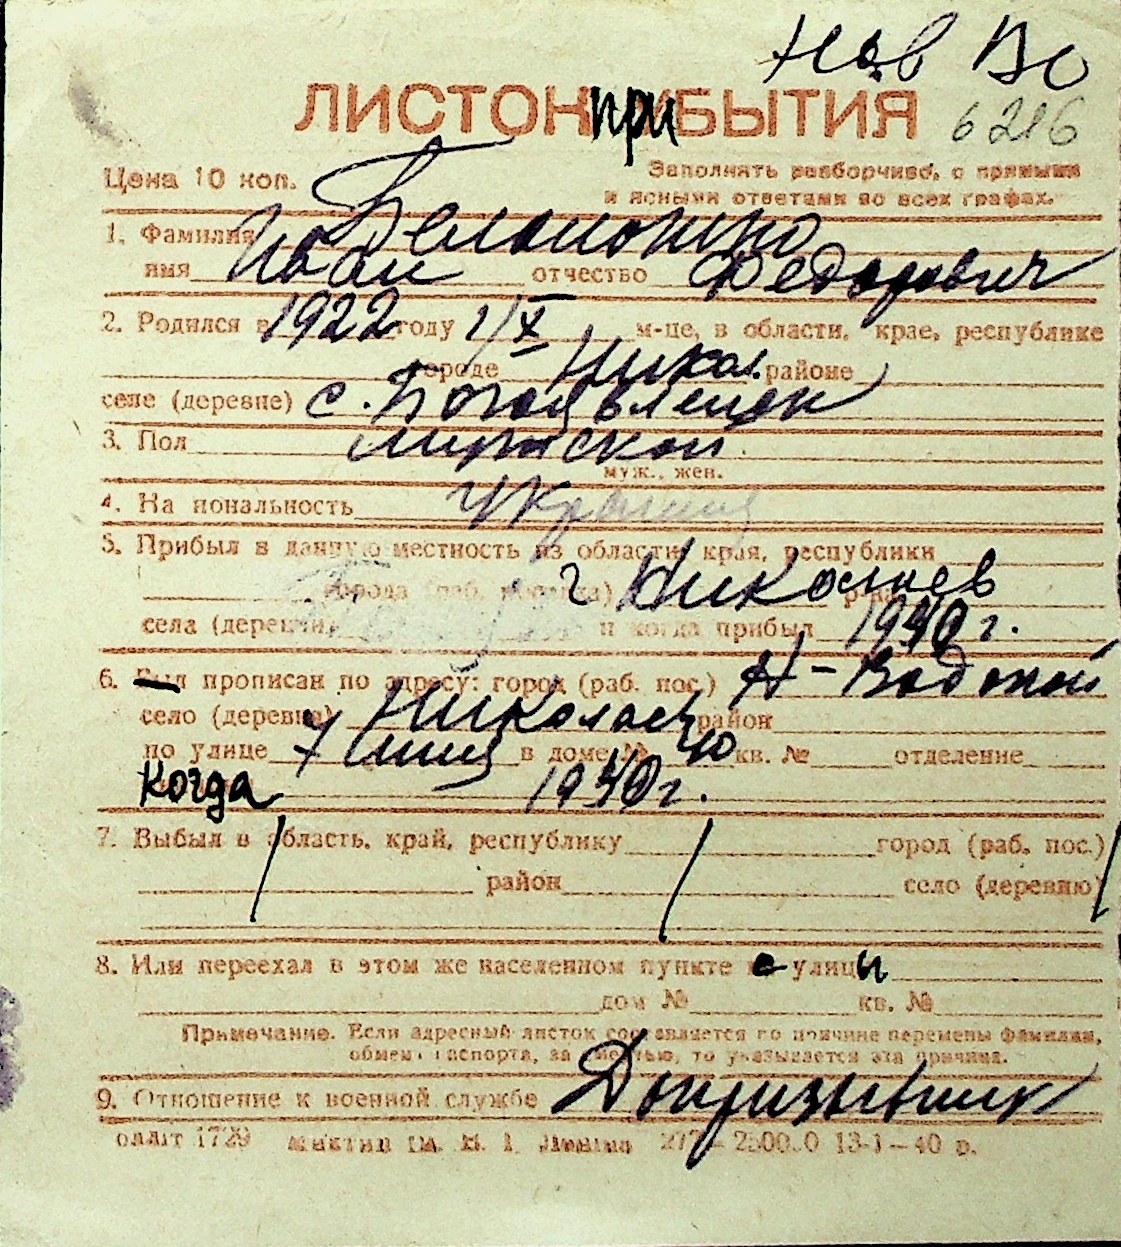 Нов Во
ЛИСТОК ПРИБЫТИЯ 6216
Цена 10 коп. Заполнять разборчиво, с прямыми
и ясными ответами во всех графах.
1. Фамилия
имя Иван отчество Федорович
2. Родился в 1922 году 1/X м-це, в области, крае, республике
городе Никол. районе
селе (деревне) с. Богоявленск
3. Пол мужской
муж., жен.
4. Национальность украинец
5. Прибыл в данную местность из области, края, республики
города (раб. поселка) г Николаев р-на
села (деревни) и когда прибыл 1940 г.
6. Был прописан по адресу: город (раб. пос.) Н-Водопой
село (деревня) Николаев район
по улице 7 линия в доме № 40 кв. № отделение
когда 1940 г.
7. Выбыл в область, край, республику город (раб. пос.)
район село (деревню)
8. Или переехал в этом же населенном пункте с улицы
дом № кв. №
Примечание. Если адресный листок составляется по причине перемены фамилии,
обмена паспорта, за смертью, то указывается эта причина.
9. Отношение к военной службе Допризывник
13-1-40 р.